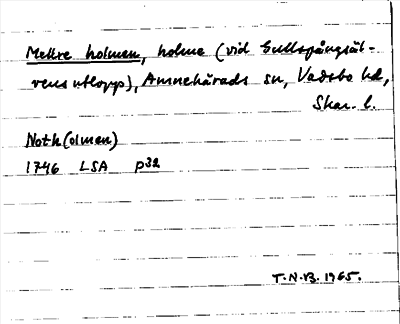 Mellre holmen, holme (vid Gullspångsäl-
vens utlopp), Amnehärads sn, Vadsbo hd,
Skar. l.
Noth(olmen)
1746 LSA P32
T.N.B. 1965.